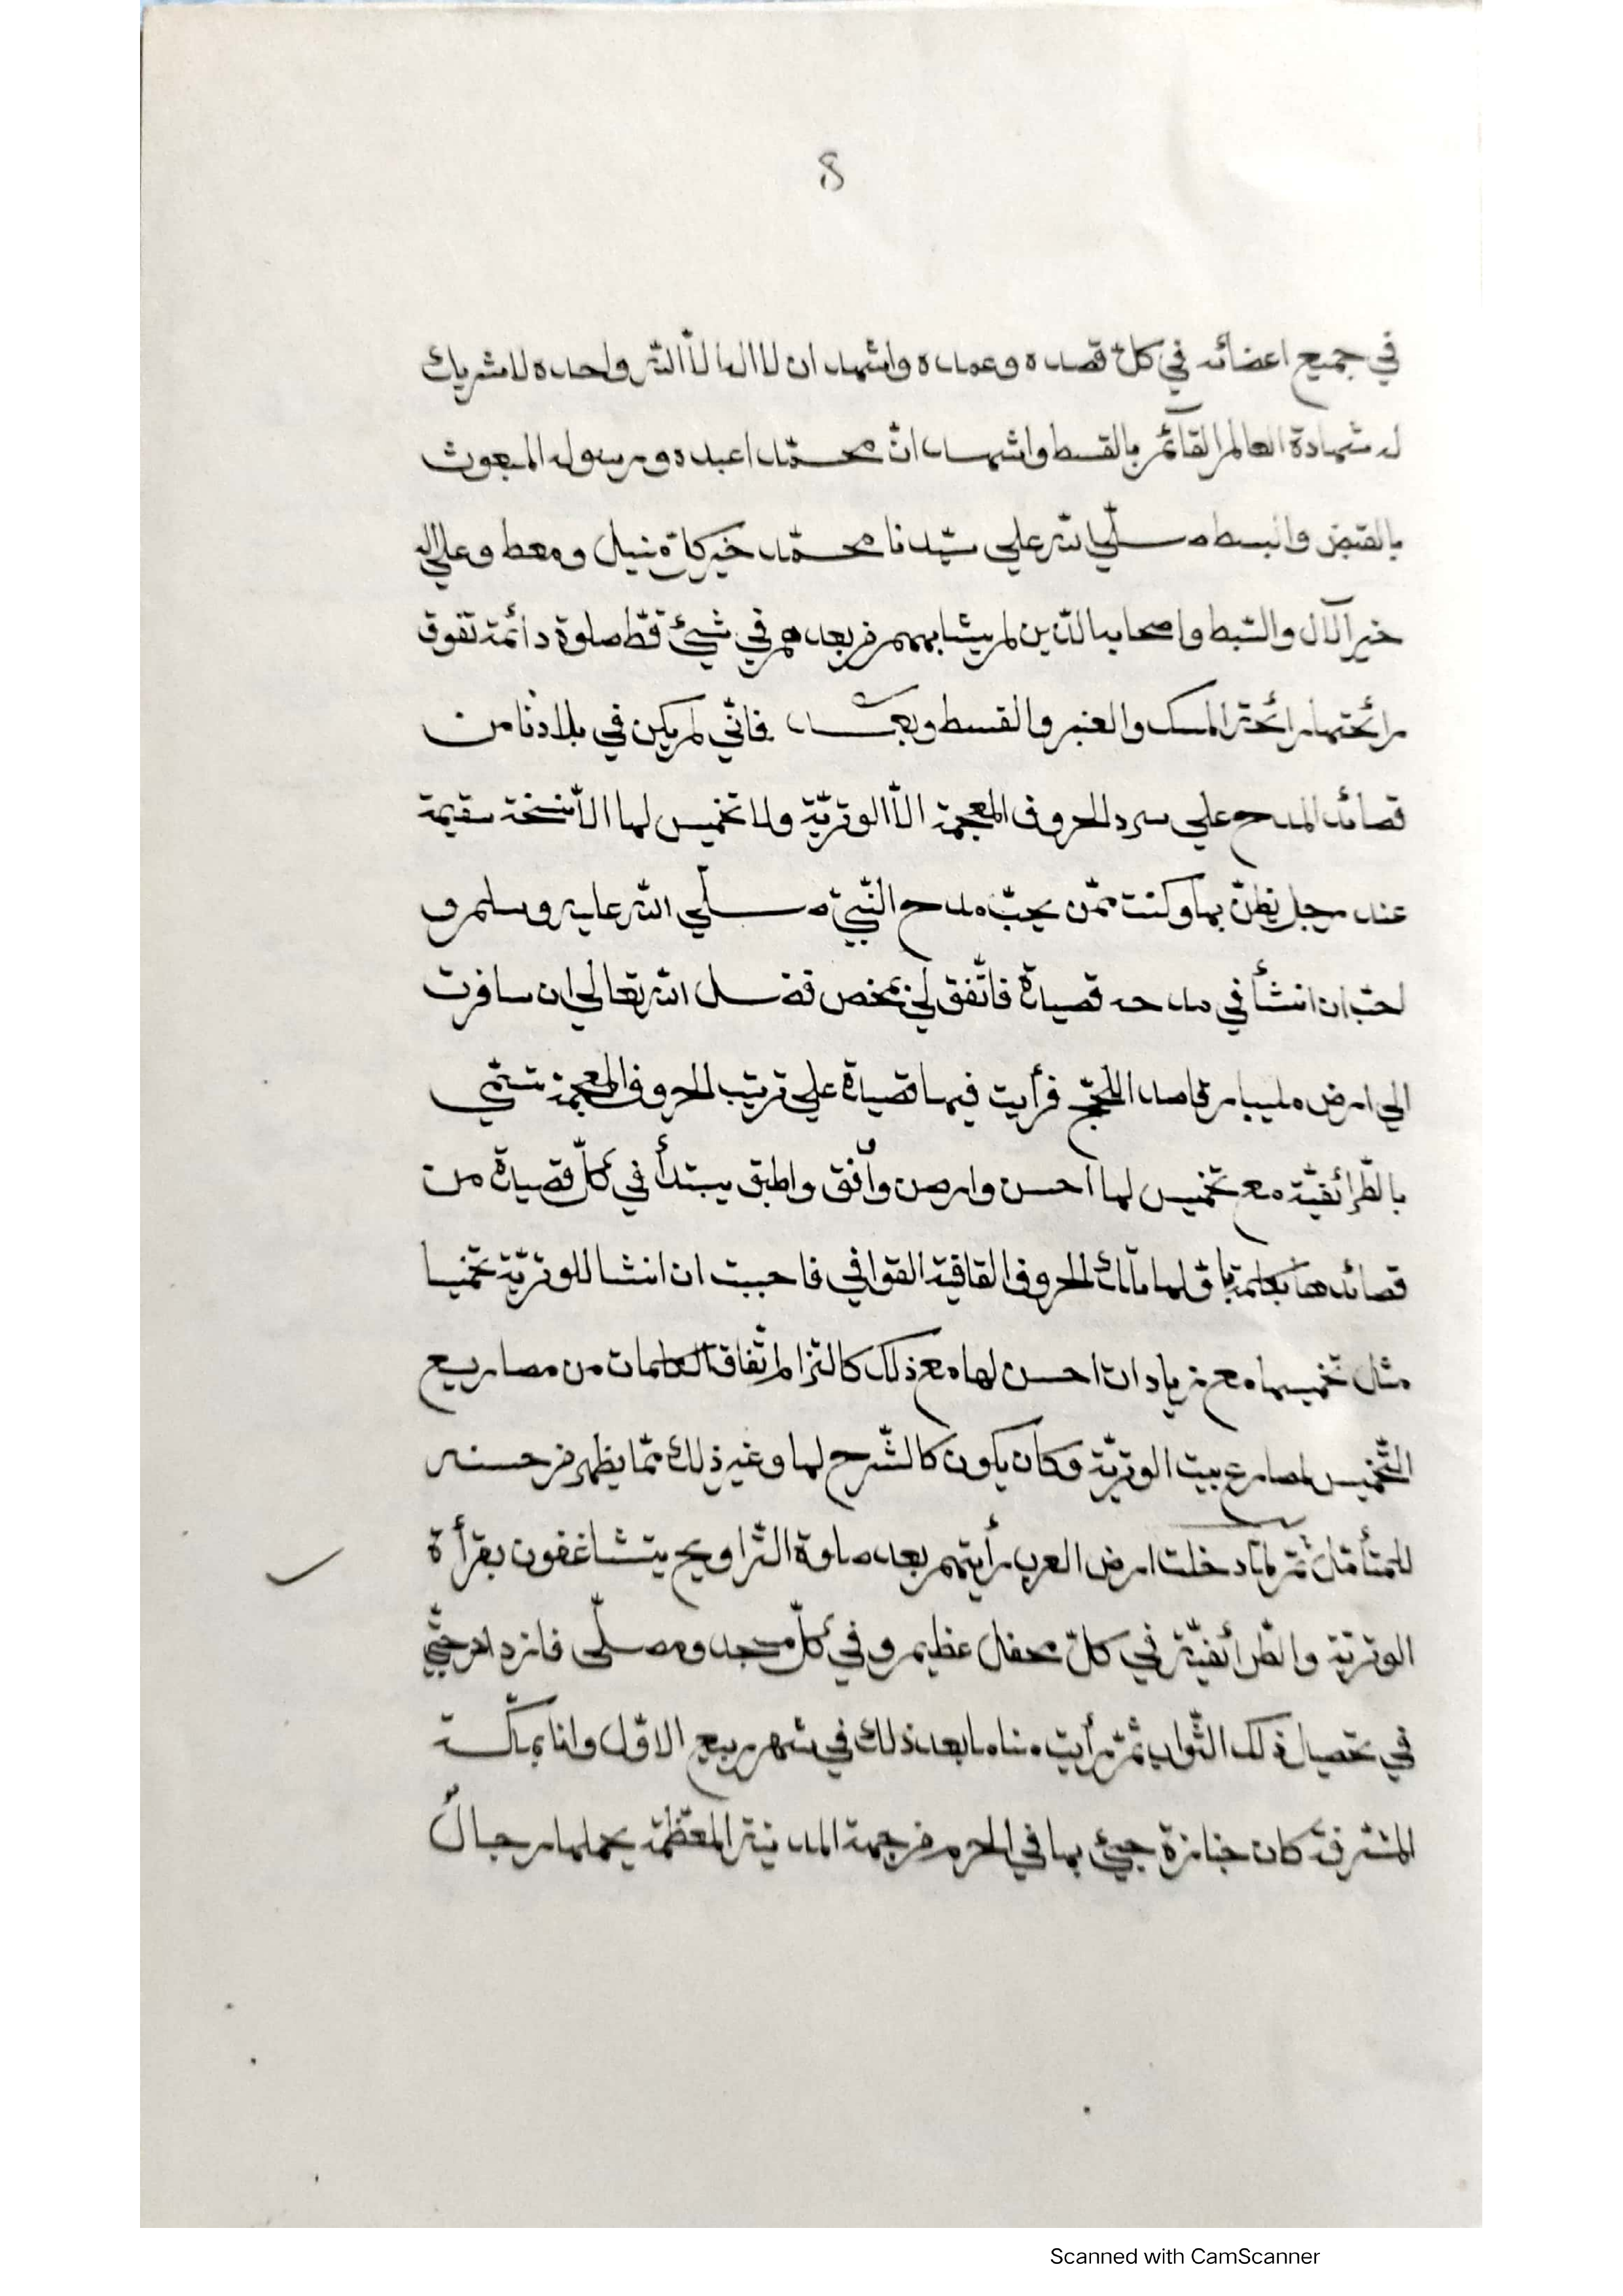 8
في جميع اعضائه في كلّ قصده وعمده واشهد ان لا اله الّا الله واحده لا شريك
له شهادة العالم القآئم بالقسط واشهد انّ محمّدا عبده ورسوله المبعوث
بالقبض والبسط صلّي الله علي سيّدنا محمّد خير كل منيل ومعط وعلي اله
خير الآل والسّبط واصحابه الّذين لم يشابههم من بعدهم في شيئ قطّ صلوة دائمة تفوق
رائحتها رائحة المسك والعنبر والقسط وبعد فانّي لم يكن في بلادنا من
قصائد المدح علي سرد الحروف المعجمة الّا الوتريّة ولا تخميس لها الّا نسخة سقيمة
عند رجل يظنّ بها وكنت ممّن يحبّ مدح النّبيّ صلّي الله عليه وسلم و
احبّ ان انشأ في مدحه قصيدة فاتّفق لي بمحض فضل الله تعالي ان سافرت
الي ارض مليبار قاصد اللحجّ فرأيت فيها قصيدة علي ترتيب الحروف المعجمة تسمّي
بالطّرائفيّة مع تخميس لها احسن وارصن وأفق واطبق يبتدأ في كلّ قصيدة من
قصائدها بكلمة لها تلك الحروف القافية القوافي فاحببت ان انشا للوتريّة تخميسا
مثل تخميسها مع زيادات احسن لها مع ذلك كالتزام اتّفاق الكلمات من مصاريع
التّخميس لمصارع بيت الوتريّة وكان يكون كالشّرح لها وغير ذلك ممّا يظهر من حسنه
للمتأمّل ثمّ لمّا دخلت ارض العرب رأيتهم بعد صلوة التّراويح يتشاغفون بقرأة
الوتريّة والطّرائفيّة في كلّ محفل عظيم وفي كلّ مسجد ومصلّى فازداد حبّي
في تحصيل ذلك الثّواب ثمّ رأيت مناما بعد ذلك في شهر ربيع الاوّل وانا بمكّة
المشرفة كان جنازة جيئ بها في الحرم من جهة المدينة المعظّمة يحملها رجال
Scanned with CamScanner